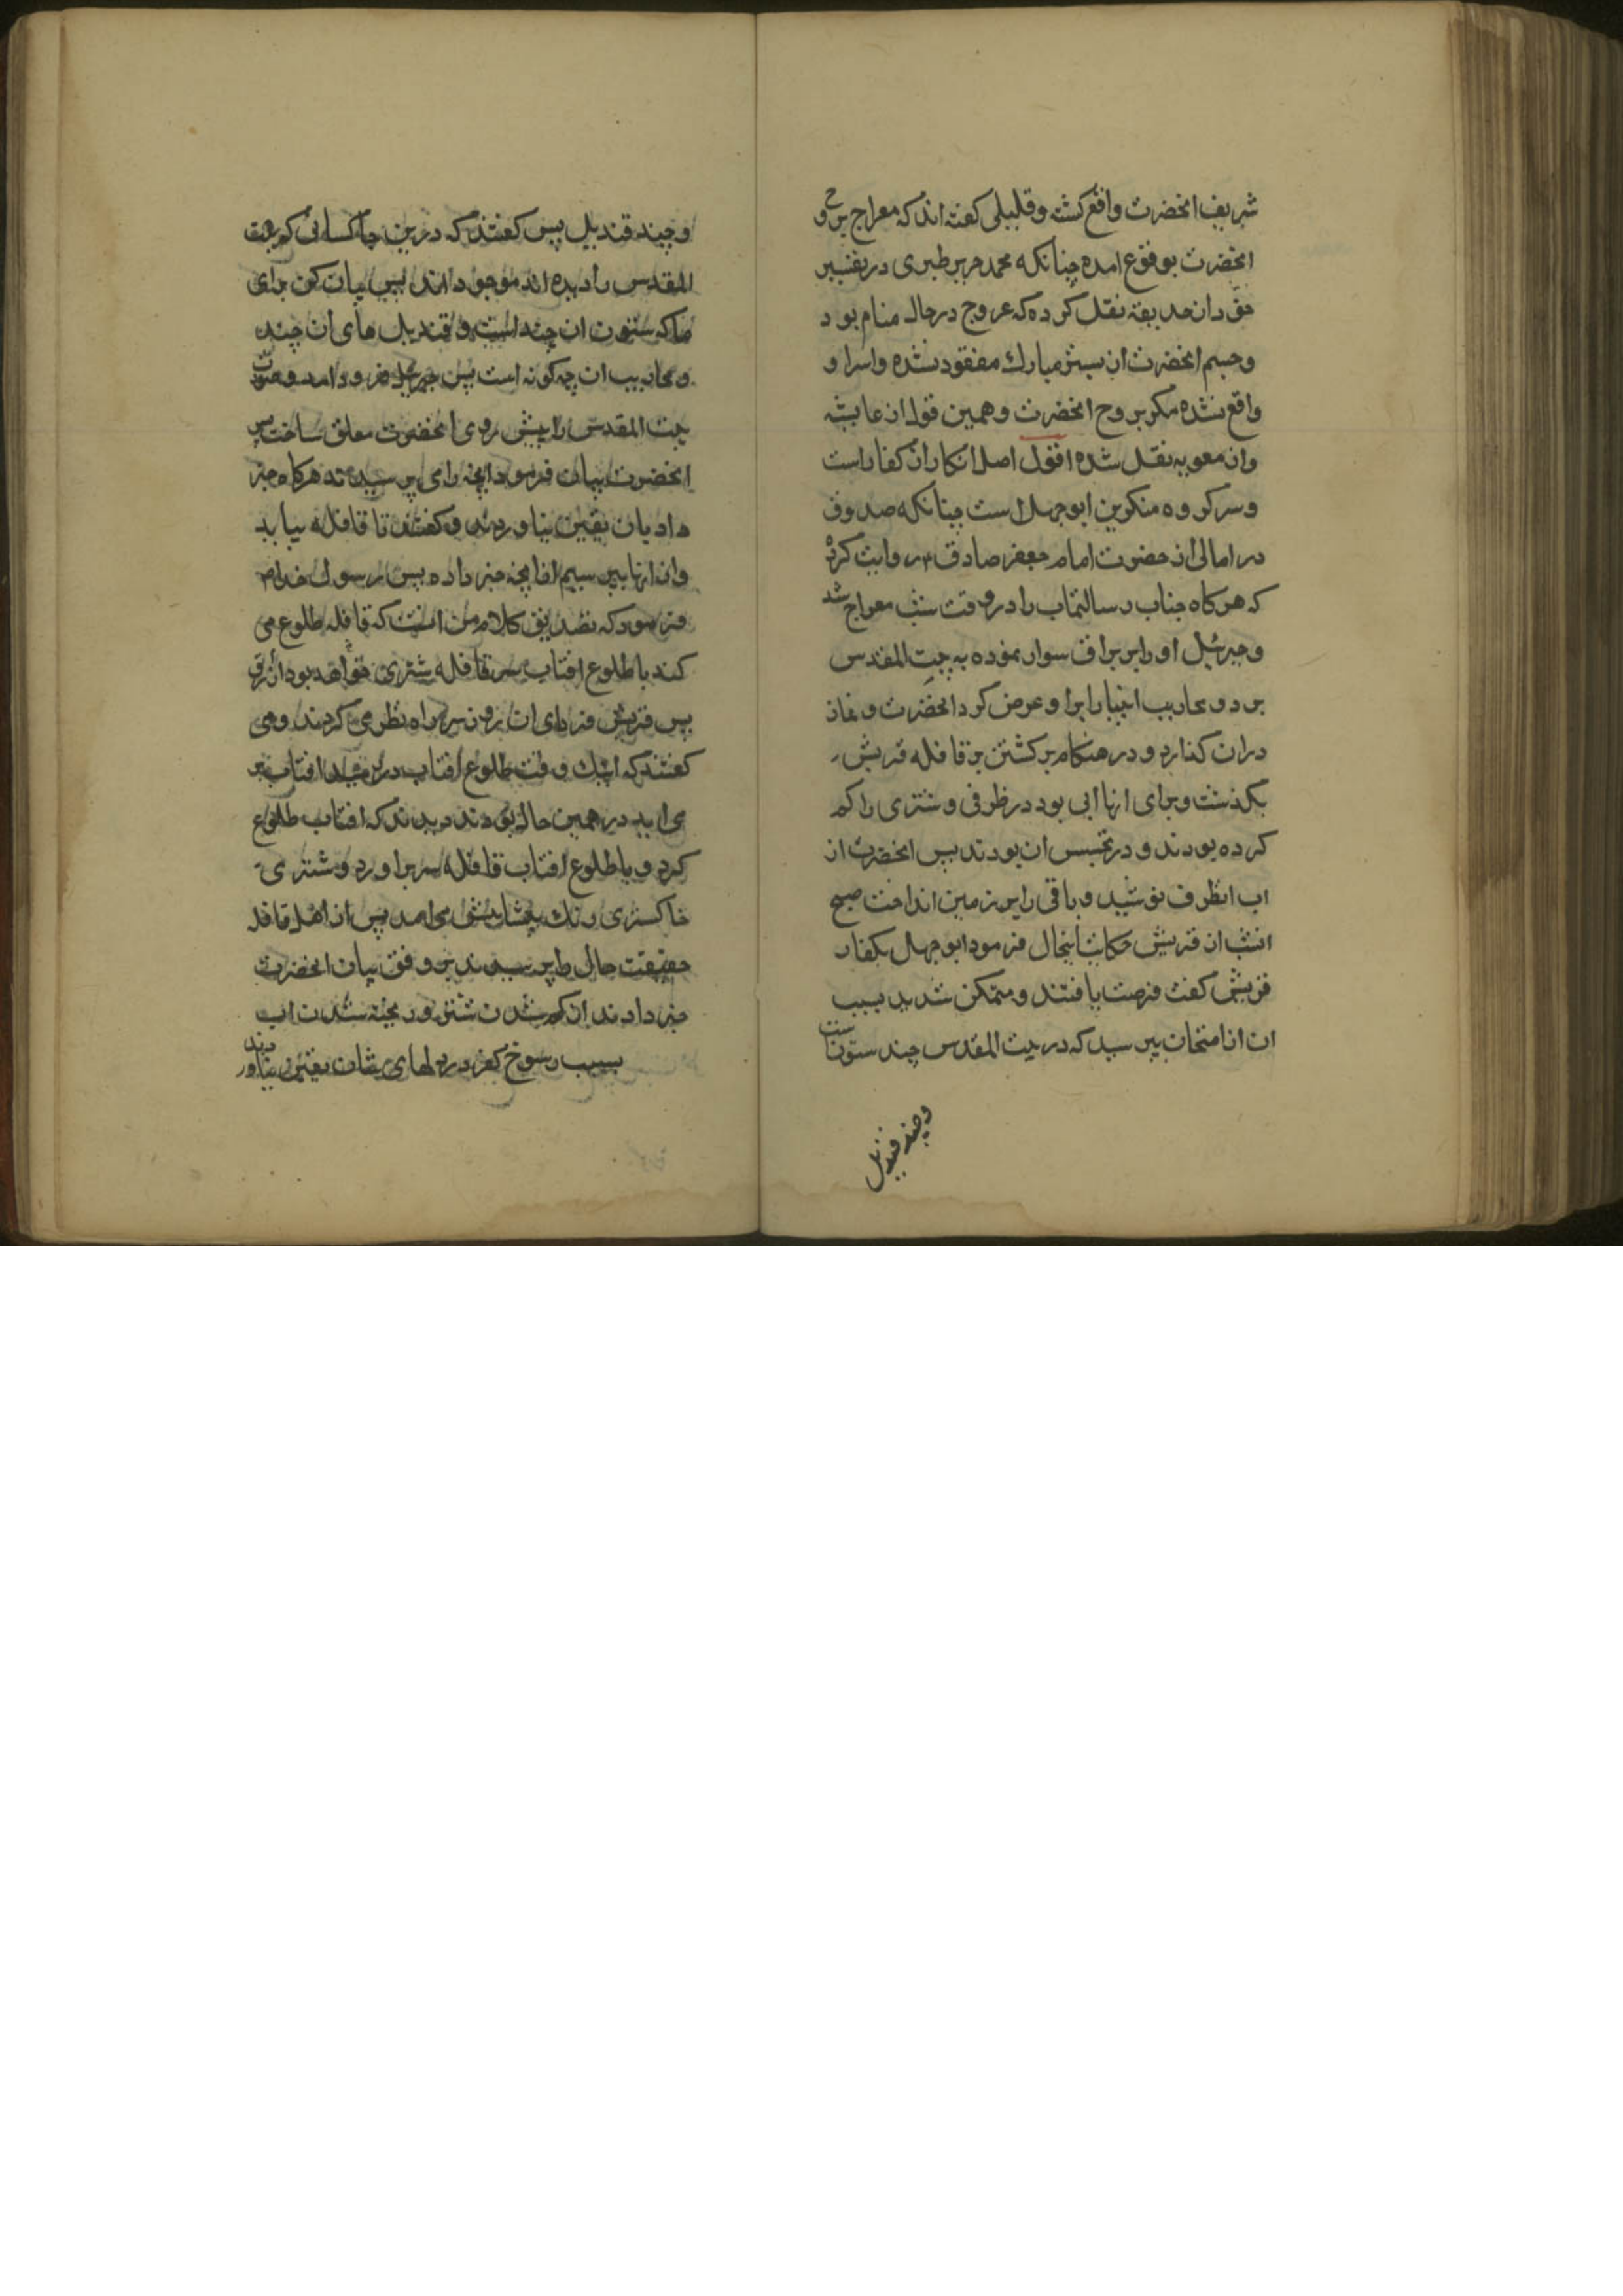 شریف انحضرت واقع کشته و قلیلی کفته اند که معراج بروح
انحضرت بوقوع امده چنانکه محمد جریر طبری در تفسیر
خود از حذیفه نقل کرده که عروج در حال منام بود
و جسم انحضرت از بستر مبارك مفقود نشده و اسرا
واقع نشده مکر بروح انحضرت و همین قول از عایشه
و از معویه نقل شده اقول اصل انکار از کفار است
و سرکروه منکرین ابوجهل است چنانکه صدوق
در امالی از حضرت امام جعفر صادق ۴ روایت کرده
که هر کاه جناب رسالتماب را در وقت شب معراج شد
و جبرئیل او را بر براق سوار نموده به بیت المقدس
برد و محاریب انبیا را برا و عرض کرد انحضرت و نماز
دران کذارد و در هنکام برکشتن بر قافله قریش
بکذشت و برای انها ابی بود در ظرفی و شتری را کم
کرده بودند و در تجسس ان بودند پس انحضرت از
اب انظرف نوشید و باقی را بر زمین انداخت صبح
انشب ان قریش حکایت اینحال فرمود ابوجهل بکفار
قریش کفت فرصت یافتند و متمکن شدید بسبب
ان از امتحان بپرسید که در بیت المقدس چند ستونست
و چند قندیل
و چند قندیل پس کفتند که درین جا کسانی که بیت
المقدس را دیده اند موجود اند پس بیان کن برای
ما که ستون ان چند است و قندیل های ان چند
و محاریب ان چه کونه است پس جبرئیل فرود امد و صورت
بیت المقدس را پیش روی انحضرت معلق ساخت پس
انحضرت بیان فرمود انچه را می پرسیدند هر کاه خبر
داد بان یقین نیاوردند و کفتند تا قافله بیاید
و از انها بپرسیم از انچه خبر داده پس رسول خدا ص
فرمود که تصدیق کلام من انست که قافله طلوع می
کند با طلوع افتاب بر سر قافله شتری خواهد بود ازرق
پس قریش فردای ان روز بر سر راه نظر می کردند و می
کفتند که اینك وقت طلوع افتاب در رسید افتاب بر
می اید در همین حال بودند دیدند که افتاب طلوع
کرد و با طلوع افتاب قافله سر براورد و شتری
خاکستری رنك پیشاپیش می امد پس از اهل قافله
حقیقت حال را پرسیدند بر وفق بیان انحضرت
خبر دادند از کم شدن شتر و ریخته شدن اب
بسبب رسوخ کفر در دلهای یشان یقین نیاوردند